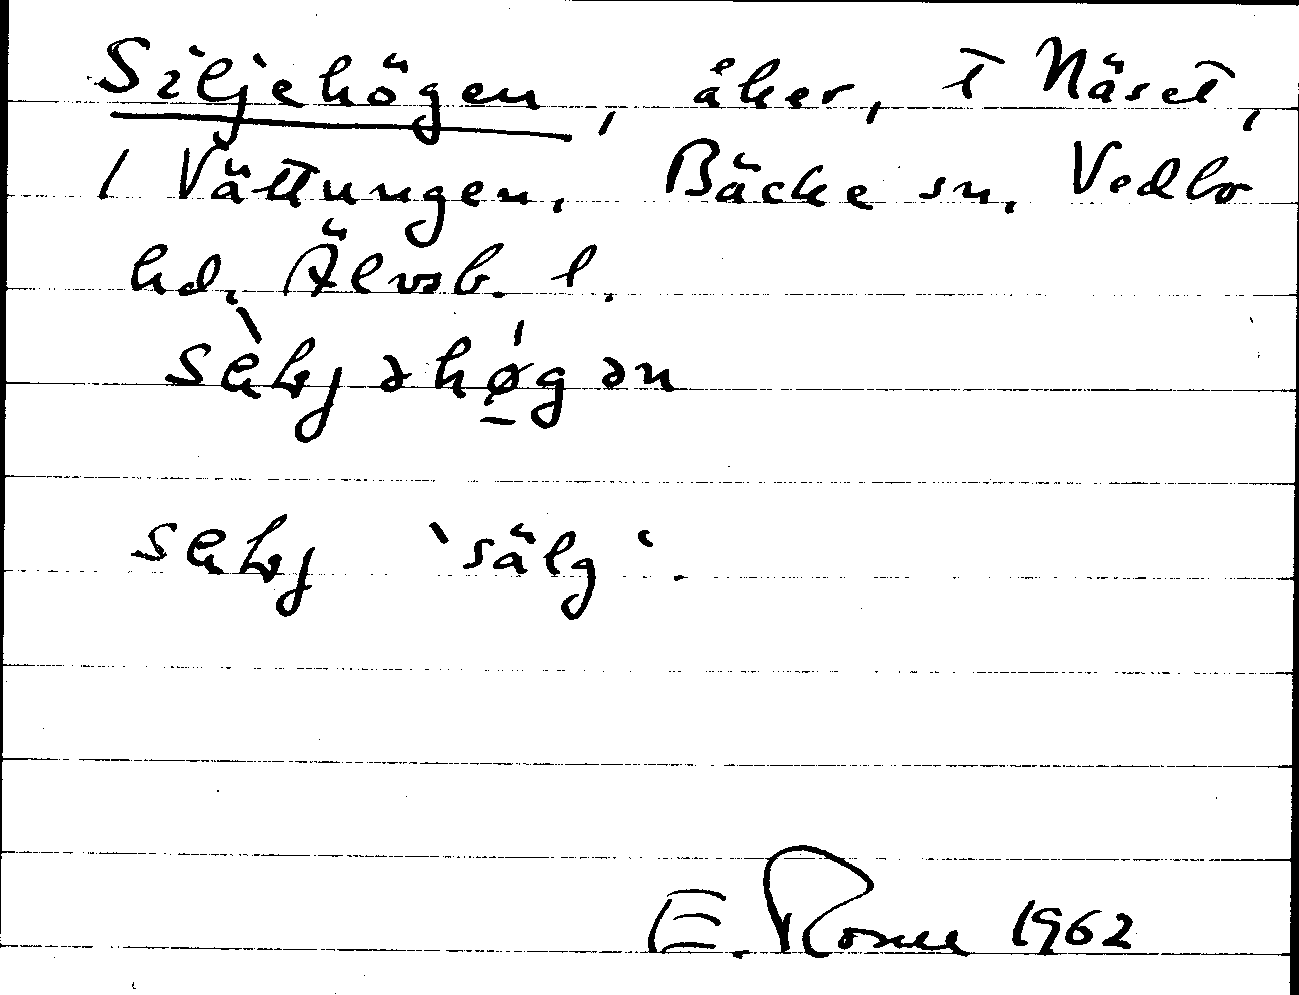 Siljehögen, åker, t Näset,
i Vättungen. Bäcke sn. Vedbo
hd. Älvsb. l.
sèljəhǿ̠gən
selj 'sälg'.
E. Rosne 1962